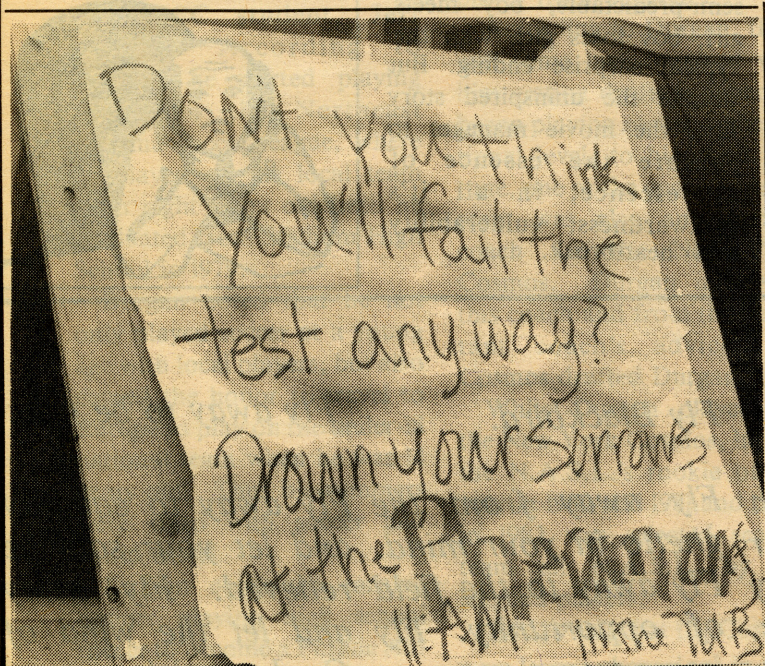 Don't you think
you'll fail the
test anyway?
Drown your sorrows
at the Pheramones
11:AM in the TUB